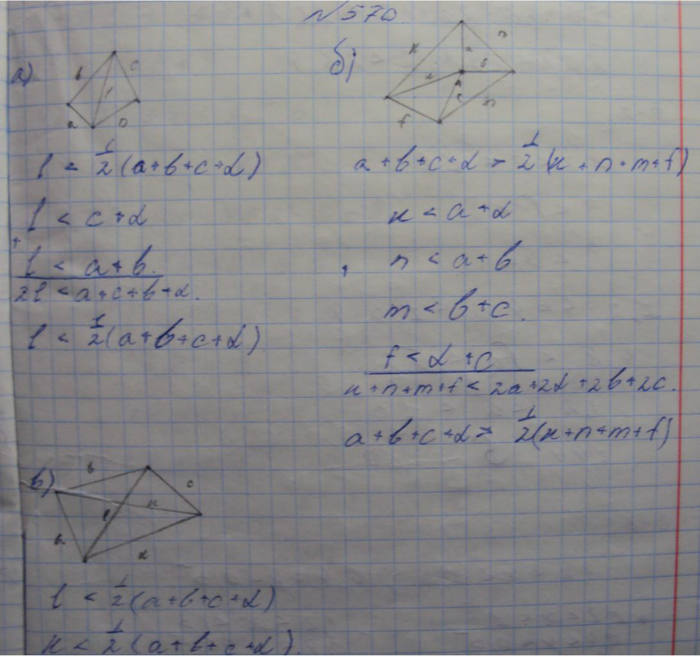 №570
а)
l < 1/2 (a+b+c+d)
l < c+d
+
l < a+b.
2l < a+c+b+d.
l < 1/2 (a+b+c+d)
б)
a+b+c+d > 1/2 (k+n+m+f)
k < a+d
n < a+b
m < b+c.
f < d+c
k+n+m+f < 2a+2d+2b+2c.
a+b+c+d > 1/2 (k+n+m+f)
в)
l < 1/2 (a+b+c+d)
k < 1/2 (a+b+c+d).